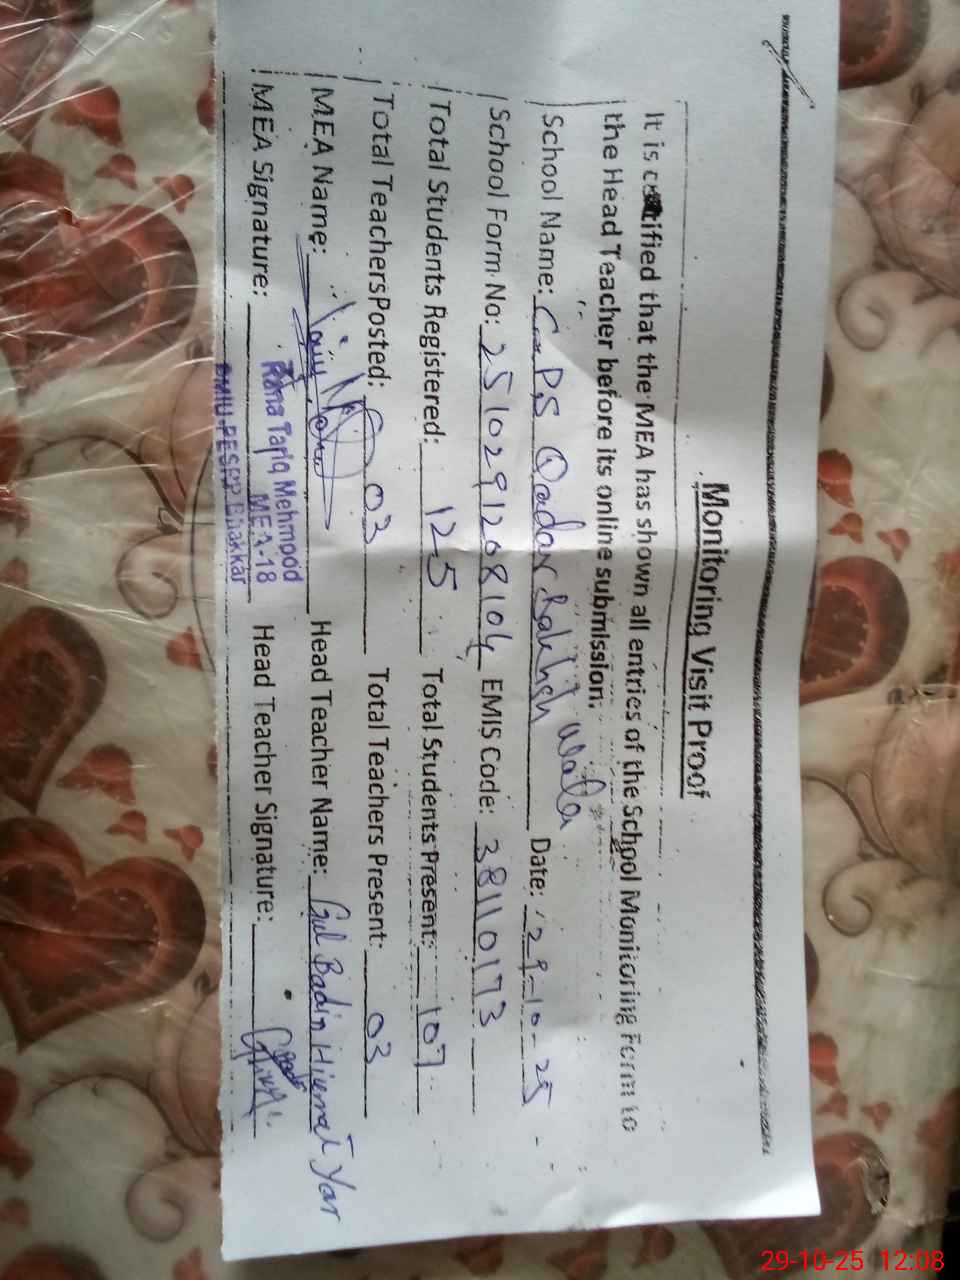 Monitoring Visit Proof
It is certified that the MEA has shown all entries of the School Monitoring Form to
the Head Teacher before its online submission.
School Name: GPS Qadar Bakhsh wala Date: 29-10-25
School Form No: 2510291208104 EMIS Code: 38110173
Total Students Registered: 125 Total Students Present: 107
Total TeachersPosted: 03 Total Teachers Present: 03
MEA Name: Head Teacher Name: Gul Badin Hikmat Yar
MEA Signature: Head Teacher Signature:
Rana Tariq Mehmood
MEA-18
DMIU-PESRP Bhakkar
29-10-25 12:08